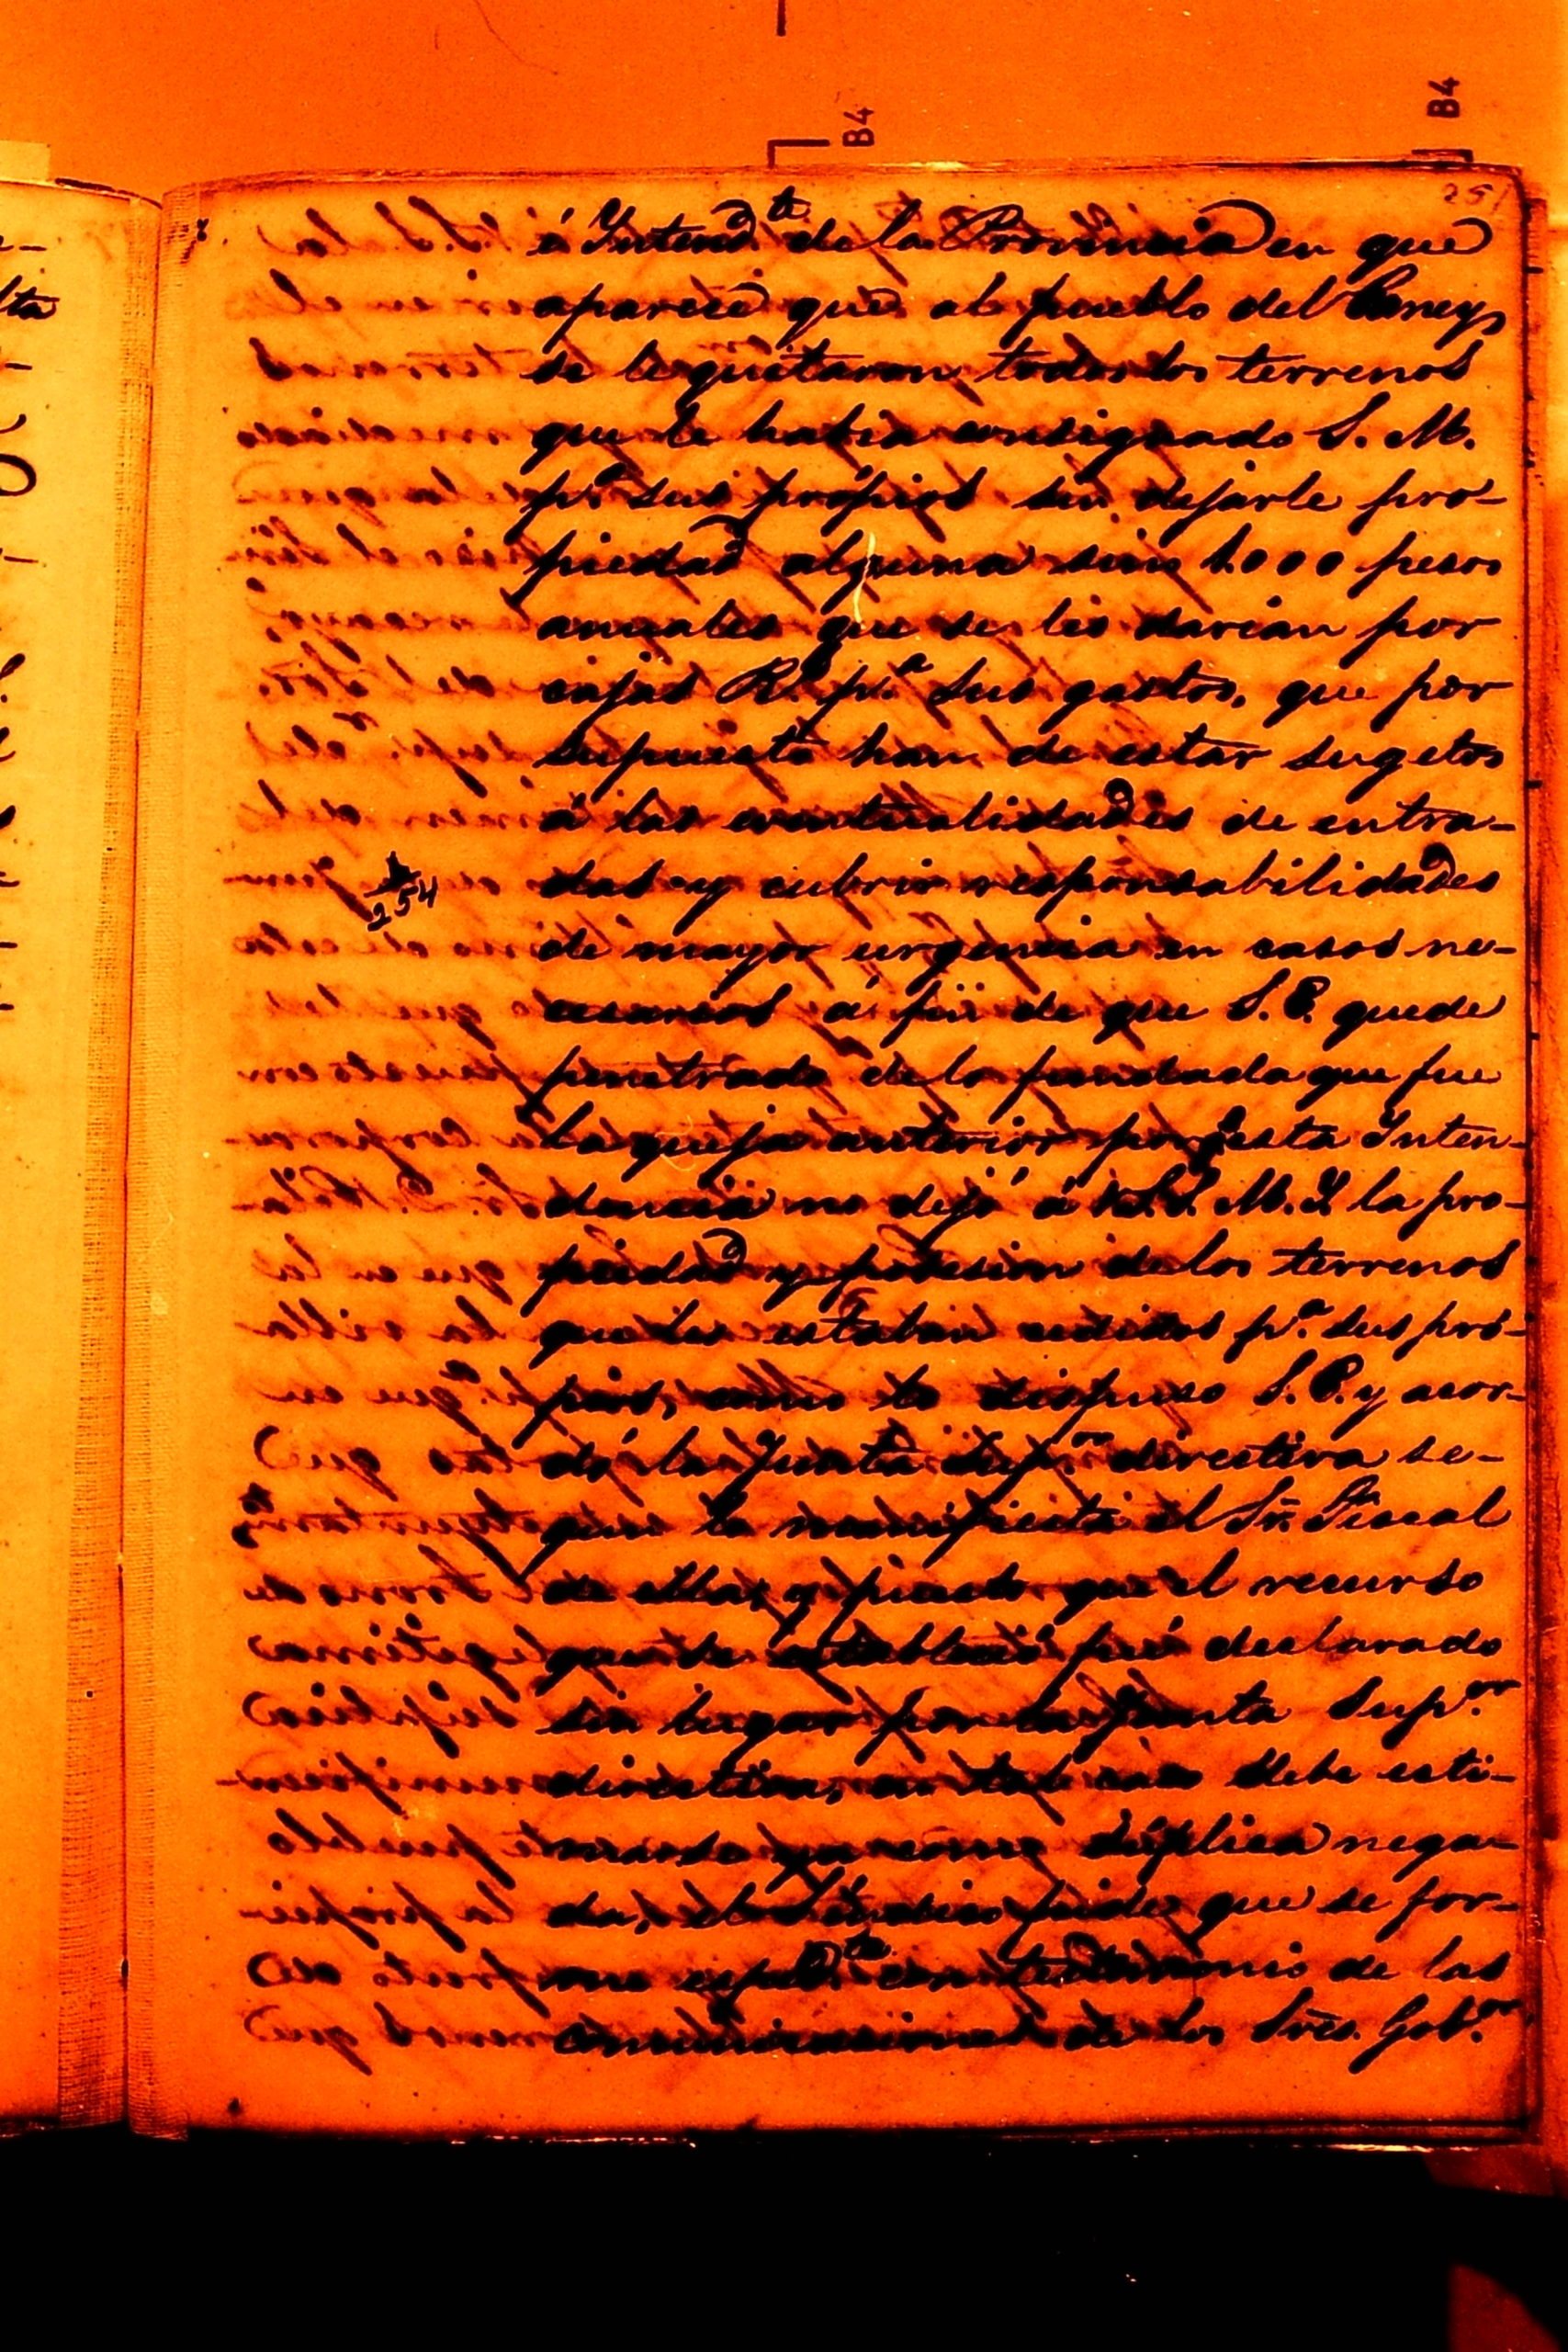 B4
B4
251
é Yntend.te de la Provincia en que
aparece que al pueblo del Caney
se le quitaron todos los terrenos
que le habia consignado S. M.
p.a sus própios sin dejarle pro-
piedad alguna sino 1.000 pesos
anuales que se les darian por
cajas R.s p.a sus gastos, que por
supuesto han de estar sugetos
á las eventualidades de entra-
das y cubrir responsabilidades
254
de mayor urgencia en casos ne-
cesarios á fin de que S. E. quede
penetrado de lo fundada que fue
la queja anterior porq.e esta Inten-
dencia no dejó á S. M. Y. la pro-
piedad y posesion de los terrenos
que les estaban cedidos p.a sus pró-
pios, como lo dispuso S. E. y acor-
dó la Junta Sup.or directiva se-
gun lo manifiesta el Sr. Fiscal
de ella; y puesto que el recurso
que se estableció fué declarado
sin lugar por la Junta Sup.or
directiva, en tal caso debe esti-
marse como súplica nega-
da, el Sindico pide que se for-
me esped.te con testimonio de las
comunicaciones de los Sres. Gob.or